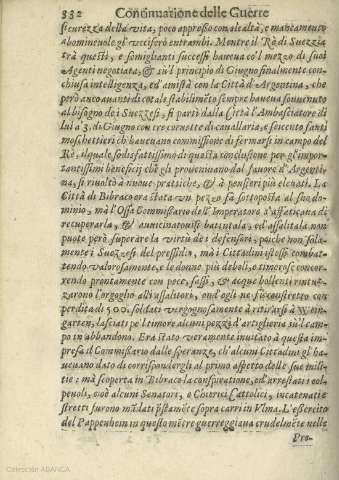 332 Continuatione delle Guerre
sicurezza della vita, poco appresso con slealtà, e mancamento
abominevole gl'vcciserò entrambi. Mentre il Rè di Suezzia
trà questi, e somiglianti successi haueua co'l mezzo di suoi
Agenti negotiata, & su'l principio di Giugno finalmente con-
chiusa intelligenza, ed amistà con la Città d'Argentina, che
però anco auanti di cotale stabilimẽto sempre haueua souuenuto
al bisogno de i Suezzesi, si partì dalla Città l'Ambasciatore di
lui a 3. di Giugno con tre cornette di cauallaria, e seicento fanti
moschettieri ch'haueano commissione di fermarsi in campo del
Rè, ilquale sodisfattissimo di questa conclusione per gl'impor-
tantissimi beneficij che gli prouenianο dal fauore d'Argenti-
na, si riuoltò à nuoue pratiche, & à pensieri più eleuati. La
Città di Bibrac era stata vn pezzo fà sottoposta al suo do-
minio, mà l'Ossa Commissario dell'Imperatore s'affaticaua di
recuperarla, & auuicinatouisi battutala, ed assalitala non
puote però superare la virtù de i defensori, poiche non sola-
mente i Suezzesi del pressidio, mà i Cittadini istessi combat-
tendo valorosamente, e le donne più deboli, e timorose concor-
rendo prontamente con pece, sassi, & acque bollenti rintuz-
zarono l'orgoglio a gl'assalitori, ond'egli ne fù costretto con
perdita di 500. soldati vergognosamente à ritirarsi à Wein-
garten, lasciati pe'l timore alcuni pezzi d'artiglieria sù'l cam-
po in abbandono. Era stato veramente inuitato à questa im-
presa il Commissario dalle speranze, ch'alcuni Cittadini gl'ha-
ueano dato di corrispondergli al primo aspetto delle sue mili-
tie: mà scoperta in Bibrac la conspiratione, ed arrestati i col-
peuoli, cioè alcuni Senatori, e Cherici Cattolici, incatenati e
stretti furono mãdati prestamẽte sopra carri in Vlma. L'essercito
del Pappenheim in questo mẽtre guerreggiaua crudelmẽte nelle
Pro-
Colección ABANCA